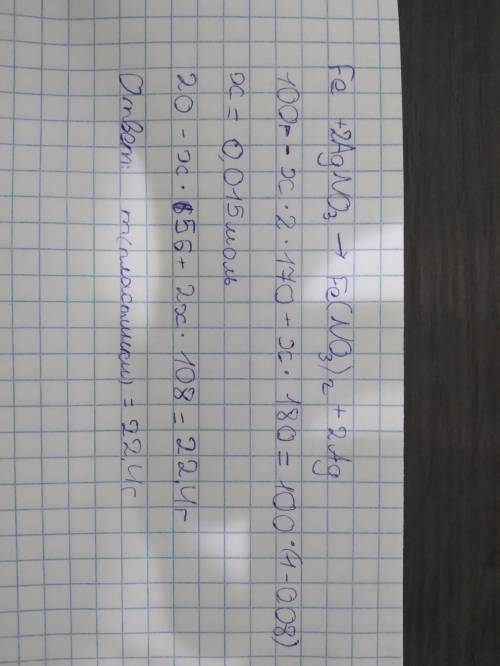 Fe + 2AgNO₃ → Fe(NO₃)₂ + 2Ag
100г - x · 2 · 170 + x · 180 = 100 · (1-0.08)
x = 0,015 моль
20 - x · 56 + 2x · 108 = 22,4г
Ответ: m(пластинки) = 22,4г